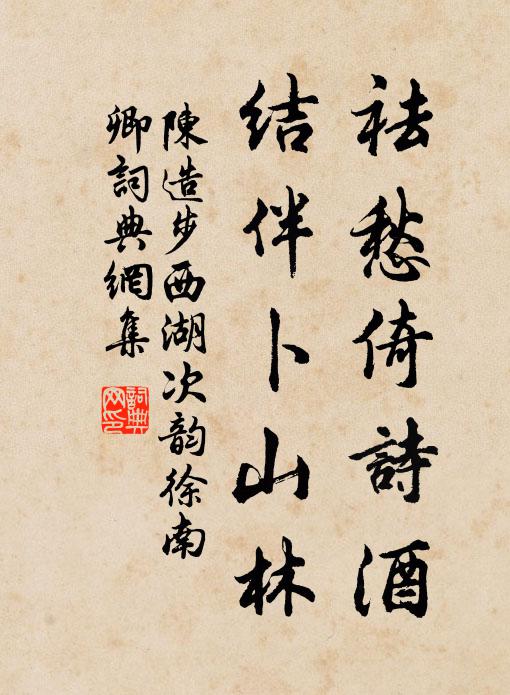 祛愁倚詩酒
結伴卜山林
陳造步西湖次韵徐南
卿詞典網集
詞典
网印